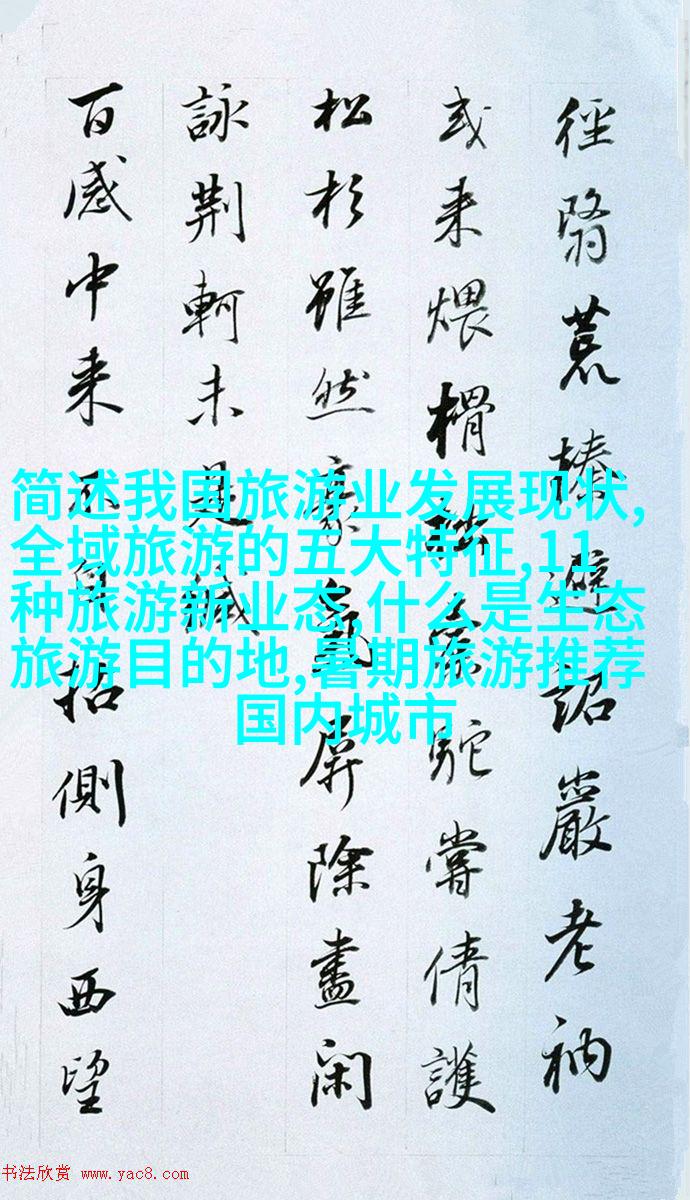 徑翳荒榛避詔巖老衲
或来煨榾柮駝嘗倩護
松杉雖然豪氣屏除盡閑
詠荆軻未是緘
百感中来不自招側身西望
简述我国旅游业发展现状,
全域旅游的五大特征,11
种旅游新业态,什么是生态
旅游目的地,暑期旅游推荐
国内城市
书法欣赏 www.yac8.com